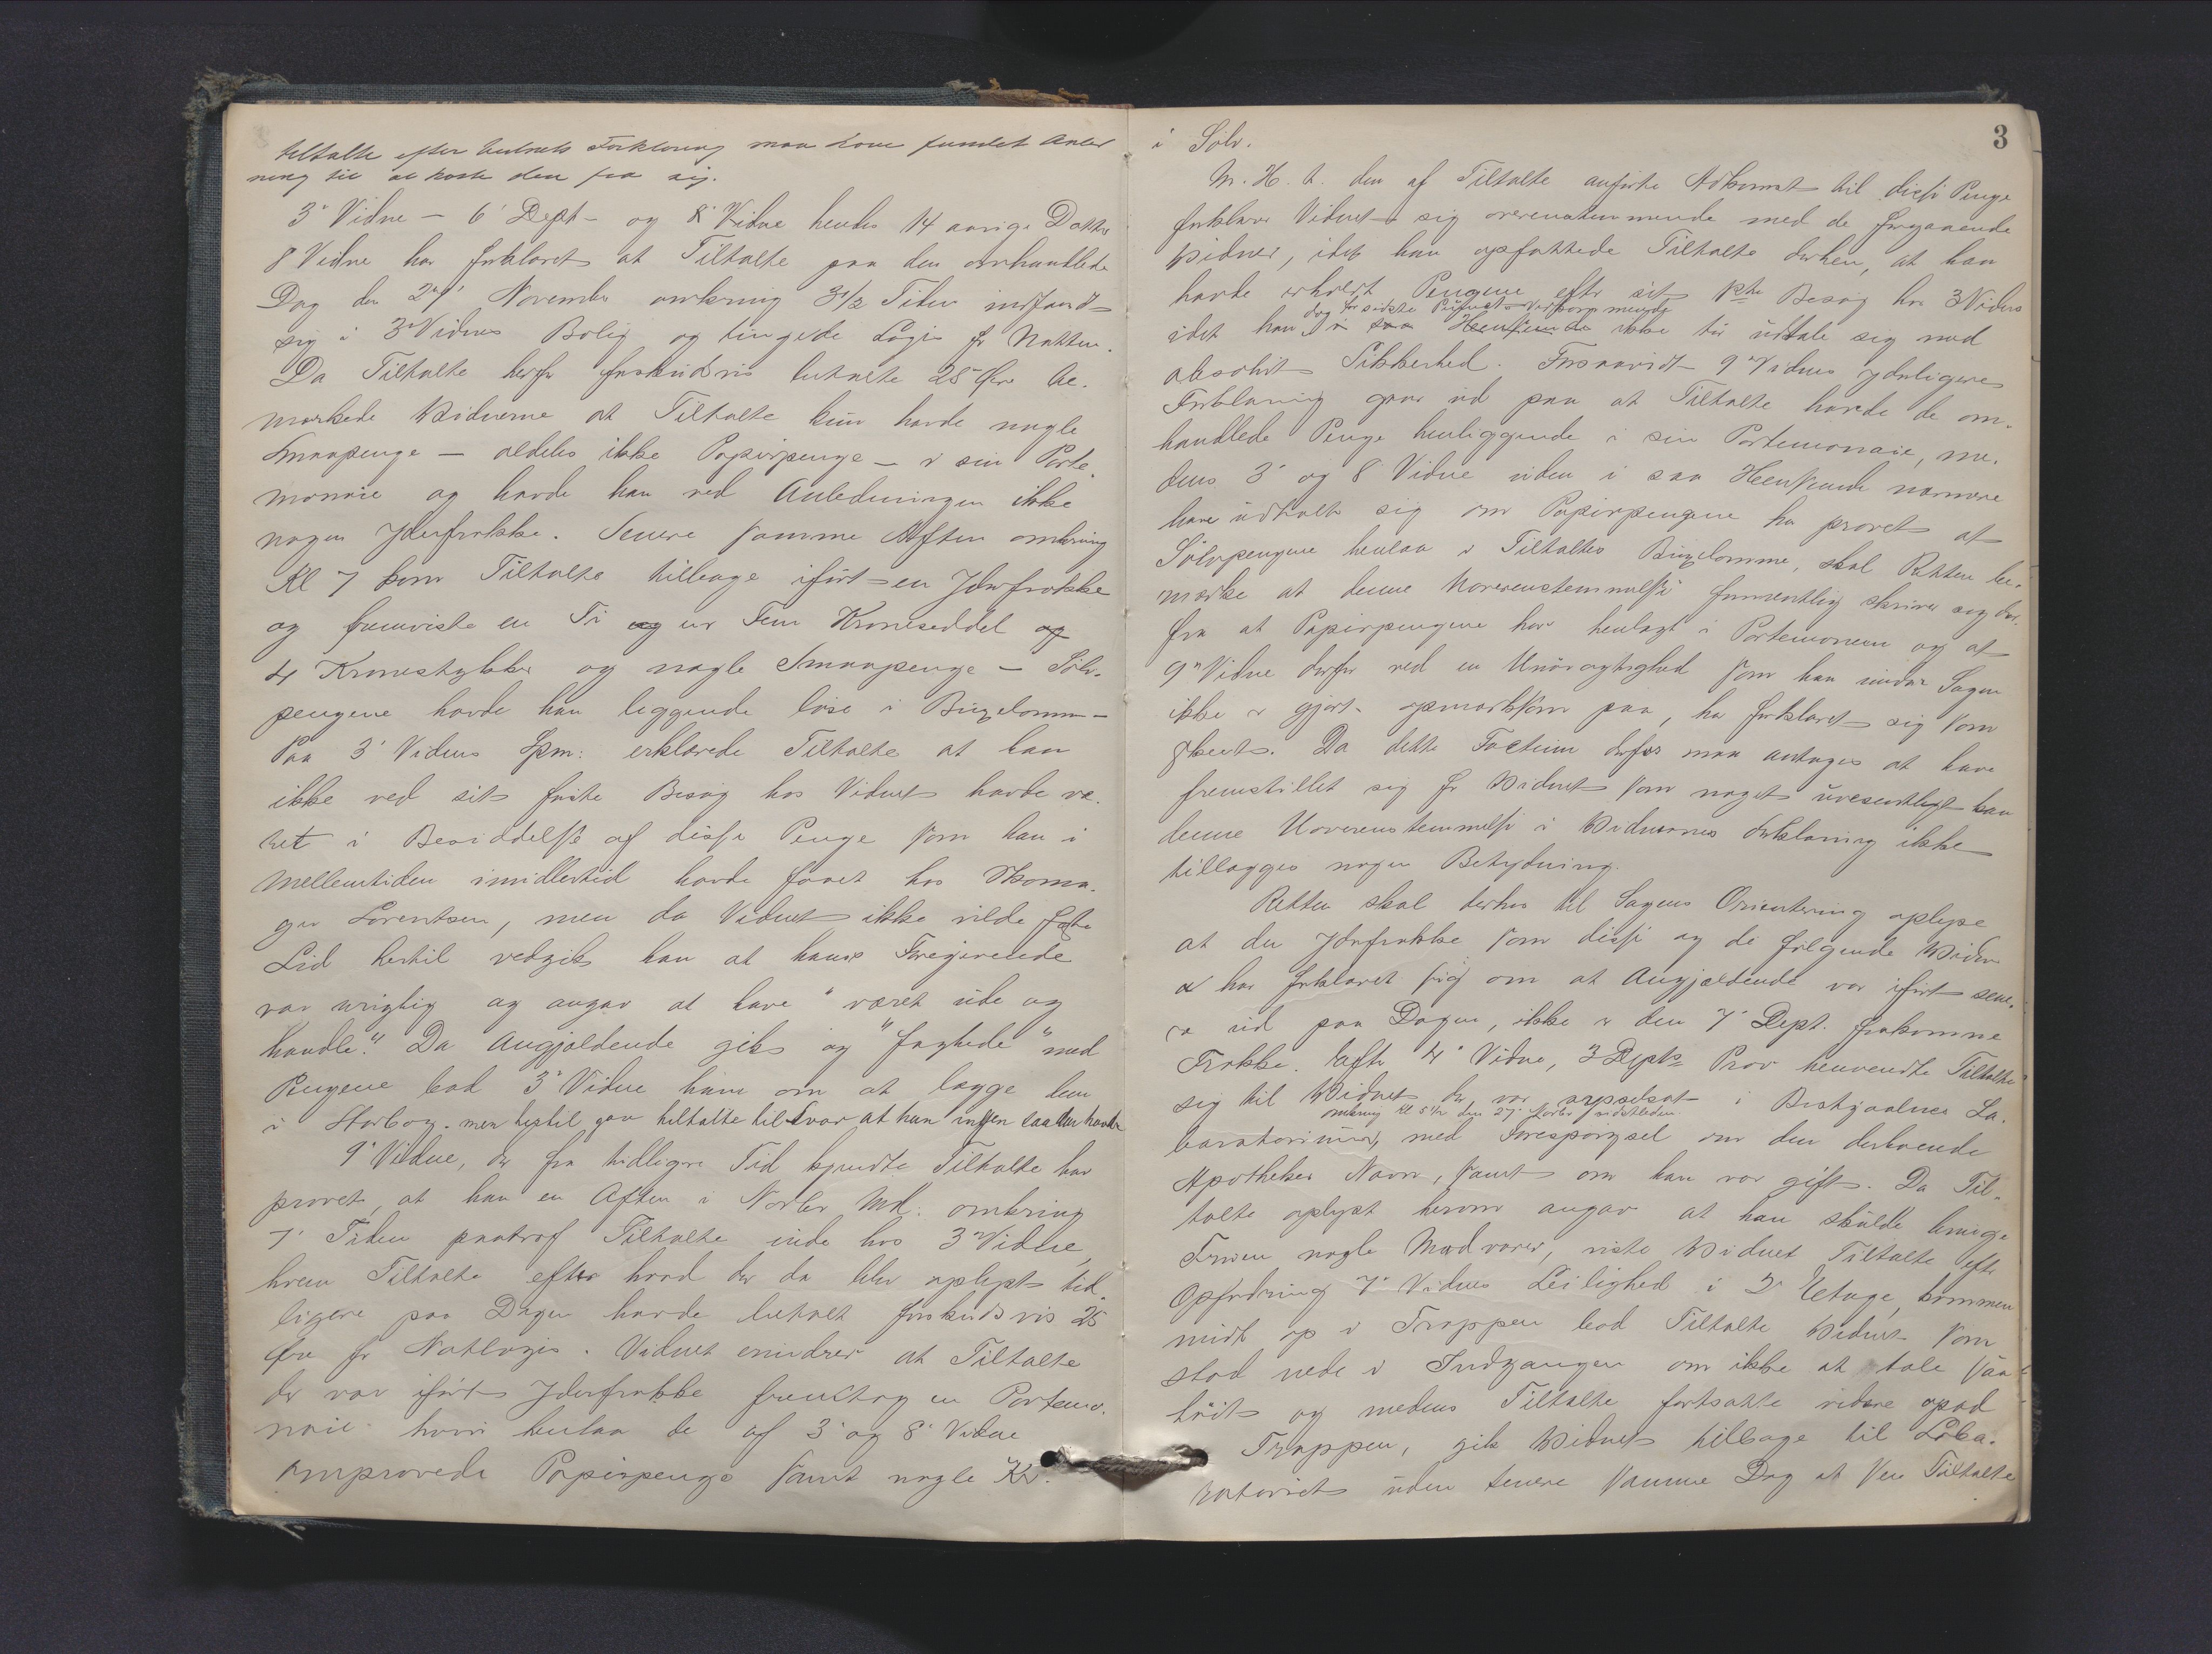 tiltalte efter hendes Forklaring maa have fundet Anled
ning til at kaste den fra sig.
3' Vidne - 6' Dept - og 8' Vidne hendes 14 aarige Datter
8 Vidne har forklaret at Tiltalte paa den omhandlede
Dag den 27' November omkring 3 1/2 Tiden indfandt
sig i 3' Vidnes Bolig og tingede Logis for Natten.
Da Tiltalte herfor forskudsvis betalte 25 Øre be-
mærkede Vidnerne at Tiltalte kun havde nogle
Smaapenge - aldeles ikke Papirpenge - i sin Porte-
monnaie og havde han ved Anledningen ikke
nogen Yderfrakke. Senere samme Aften omkring
Kl 7 kom Tiltalte tilbage iført en Yderfrakke
og fremviste en Ti og en Fem Kroneseddel og
4 Kronestykker og nogle Smaapenge - Sølv-
pengene havde han liggende løse i Buxelommen -
Paa 3' Vidnes Spm: erklærede Tiltalte at han
ikke ved sit første Besøg hos Vidnet havde væ-
ret i Besiddelse af disse Penge som han i
Mellemtiden imidlertid havde faaet hos Skoma-
ger Lorentsen, men da Vidnet ikke vilde fæste
Lid hertil vedgik han at hans Foregivende
var urigtig og angav at have "været ude og
handle". Da Angjældende gik og "fagtede" med
Pengene bad 3' Vidne ham om at lægge dem
i Skatbog. men hertil gav tiltalte tilsvar at han ingen saadan havde
9' Vidne, der fra tidligere Tid kjendte Tiltalte har
provet, at han en Aften i Novbr Md: omkring
7' Tiden paatraf Tiltalte inde hos 3' Vidne,
hvem Tiltalte efter hvad der da blev oplyst tid-
ligere paa Dagen havde betalt forskudsvis 25
Øre for Natlogis. Vidnet erindrer at Tiltalte
der var iført Yderfrakke fremtog en Portemo-
naie hvori henlaa de af 3' og 8' Vidne
omprovede Papirpenge samt nogle Kr.
3
i Sølv.
M. H. t. den af Tiltalte anførte Adkomst til disse Penge
forklarer Vidnet sig overensstemmende med de foregaaende
Vidner, idet han opfattede Tiltalte derhen, at han
havde erholdt Pengene efter sit 1ste Besøg hos 3 Vidne
dog for sidste Punkts Vedkommende
idet han i saa Henseende ikke tør udtale sig med
absolut Sikkerhed. Forsaavidt 9' Vidnes ydeligere
Forklaring gaar ud paa at Tiltalte havde de om-
handlede Penge henliggende i sin Portemonaie, me-
dens 3' og 8' Vidne uden i saa Henseende nærmere
have udtalt sig om Papirpengene har provet at
Sølvpengene henlaa i Tiltaltes Buxelomme, skal Retten be-
mærke at denne Uoverensstemmelse formentlig skriver sig der-
fra at Papirpengene har henlagt i Portemonaien og at
9' Vidne derfor ved en Unøiagtighed som han under Sagen
ikke er gjort opmærksom paa, har forklaret sig som
skeet. Da dette Factum derfor maa antages at have
fremstillet sig for Vidnet som noget uvæsentligt kan
denne Uoverensstemmelse i Vidnernes Forklaring ikke
tillægges nogen Betydning.
Retten skal derhos til Sagens Orientering oplyse
at den Yderfrakke som disse og de følgende Vidner
har forklaret sig om at Angjældende var iført sene-
re ud paa Dagen, ikke er den 7' Dept. frakomne
Frakke. Efter 4' Vidne, 3 Depts Prov henvendte Tiltalte
sig til Vidnet der var sysselsat i Bestjaalnes La-
omkring Kl 5 1/2 den 27' Novbr sidstleden
boratorium, med Forespørgsel om den derboende
Apotheker Navn, samt om han var gift. Da Til-
talte oplyst herom angav at han skulde bringe
Fruen nogle Madvarer, viste Vidnet Tiltalte efter
Opfordring 7' Vidnes Leilighed i 2' Etage, kommen
midt op i Trappen bad Tiltalte Vidnet som
stod nede i Indgangen om ikke at tale saa
høit og medens Tiltalte fortsatte videre opad
Trappen, gik Vidnet tilbage til Labo-
ratoriet uden senere samme Dag at see Tiltalte